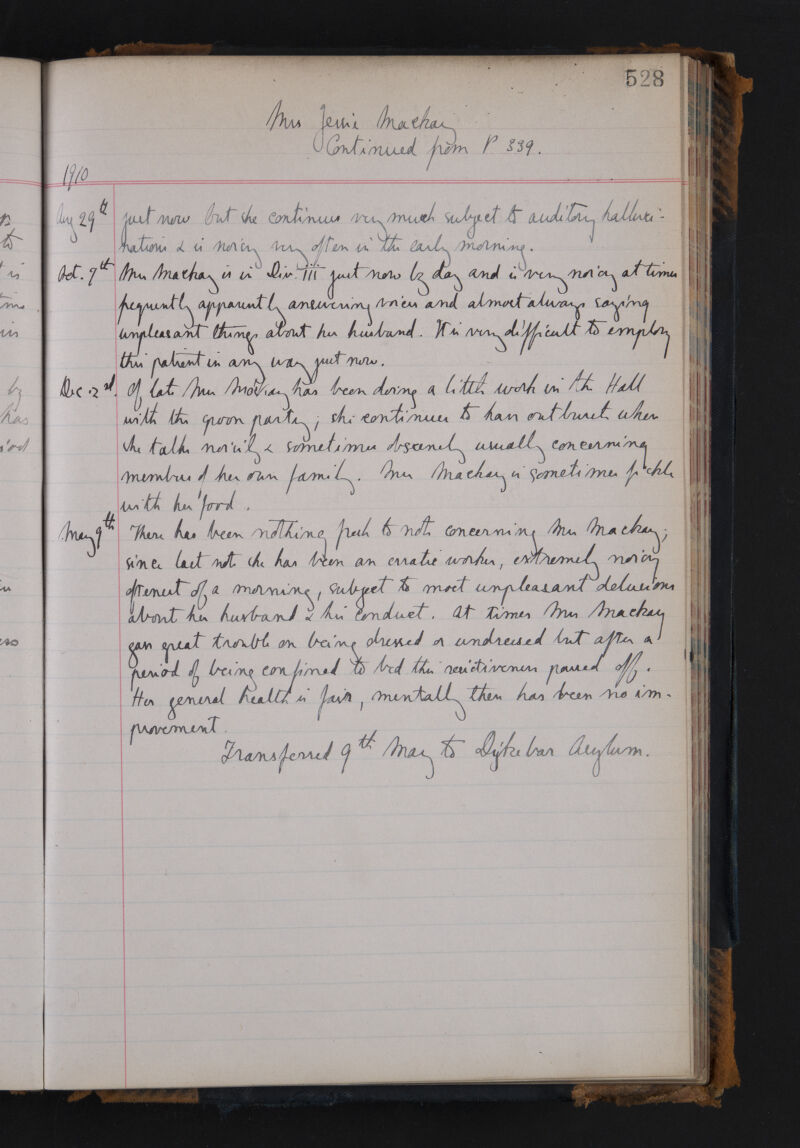 528
Mrs Jessie Mackay
Continued from P 339.
1910
Aug 29th just now but she continues very much subject to auditory halluci-
nations & is noisy very often in the early morning.
Oct. 9th Mrs Mackay is in Div. III just now by day and is very noisy at times
frequently apparently answering voices and almost always saying
unpleasant things about her husband. It is very difficult to employ
this patient in any way just now.
Dec. 2nd. Of late Mrs Mackay has been doing a little work in the Hall
with the spoon party; she continues to have outbursts when
she talks noisily & sometimes obscenely usually concerning
members of her own family. Mrs Mackay is sometimes fickle
with her food.
May 9th There has been nothing fresh to note concerning Mrs Mackay;
since last note she has been an erratic worker, extremely noisy
oftenest of a morning, subject to most unpleasant delusions
about her husband & his conduct. At times Mrs Mackay
gave great trouble on being dressed or undressed but after a
period of being confined to bed this resistiveness passed off.
Her general health is fair, mentally there has been no im-
provement.
Transferred 9th May to Dykebar Asylum.